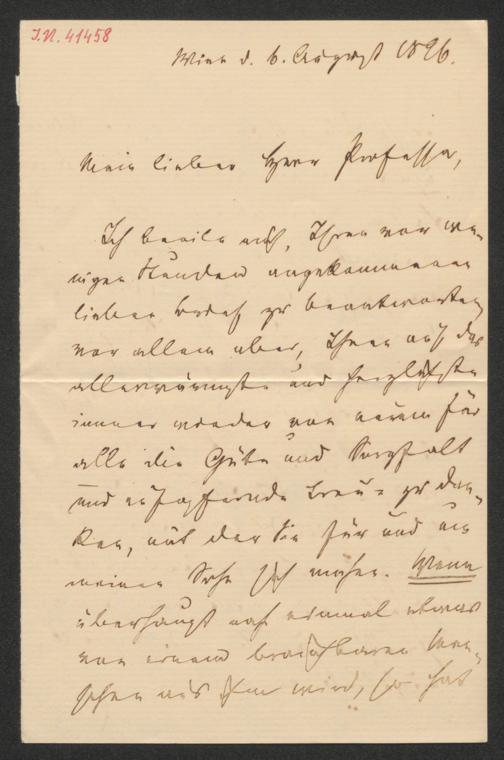 J.N. 41458
Wien d. 6. August 1896.
Mein lieber Herr Professor,
Ich beeile mich, Ihren vor we-
nigen Stunden angekommenen
lieben Brief zu beantworten
vor allem aber, Ihnen auf das
allerwärmste und herzlichste
immer wieder von neuem für
alle die Güte und Sorgfalt
und aufopfernde Treue zu dan-
ken, mit der Sie für und um
meinen Sohn sich mühen. Wenn
überhaupt noch einmal etwas
von einem brauchbaren Men-
schen aus ihm wird, so hat